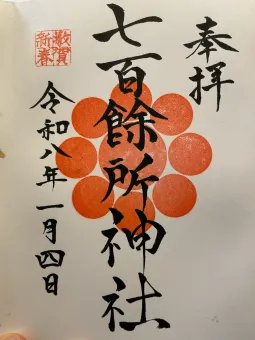 奉拝
七百餘所神社
敬賀新春
令和八年一月四日